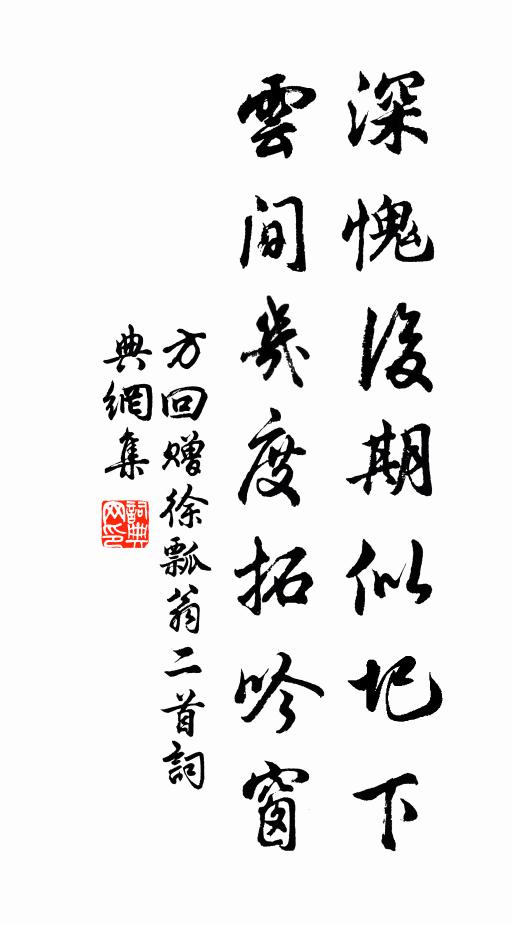 深愧後期似圯下
雲間幾度拓吟窗
方回贈徐瓢翁二首詞
典網集
詞典
网印